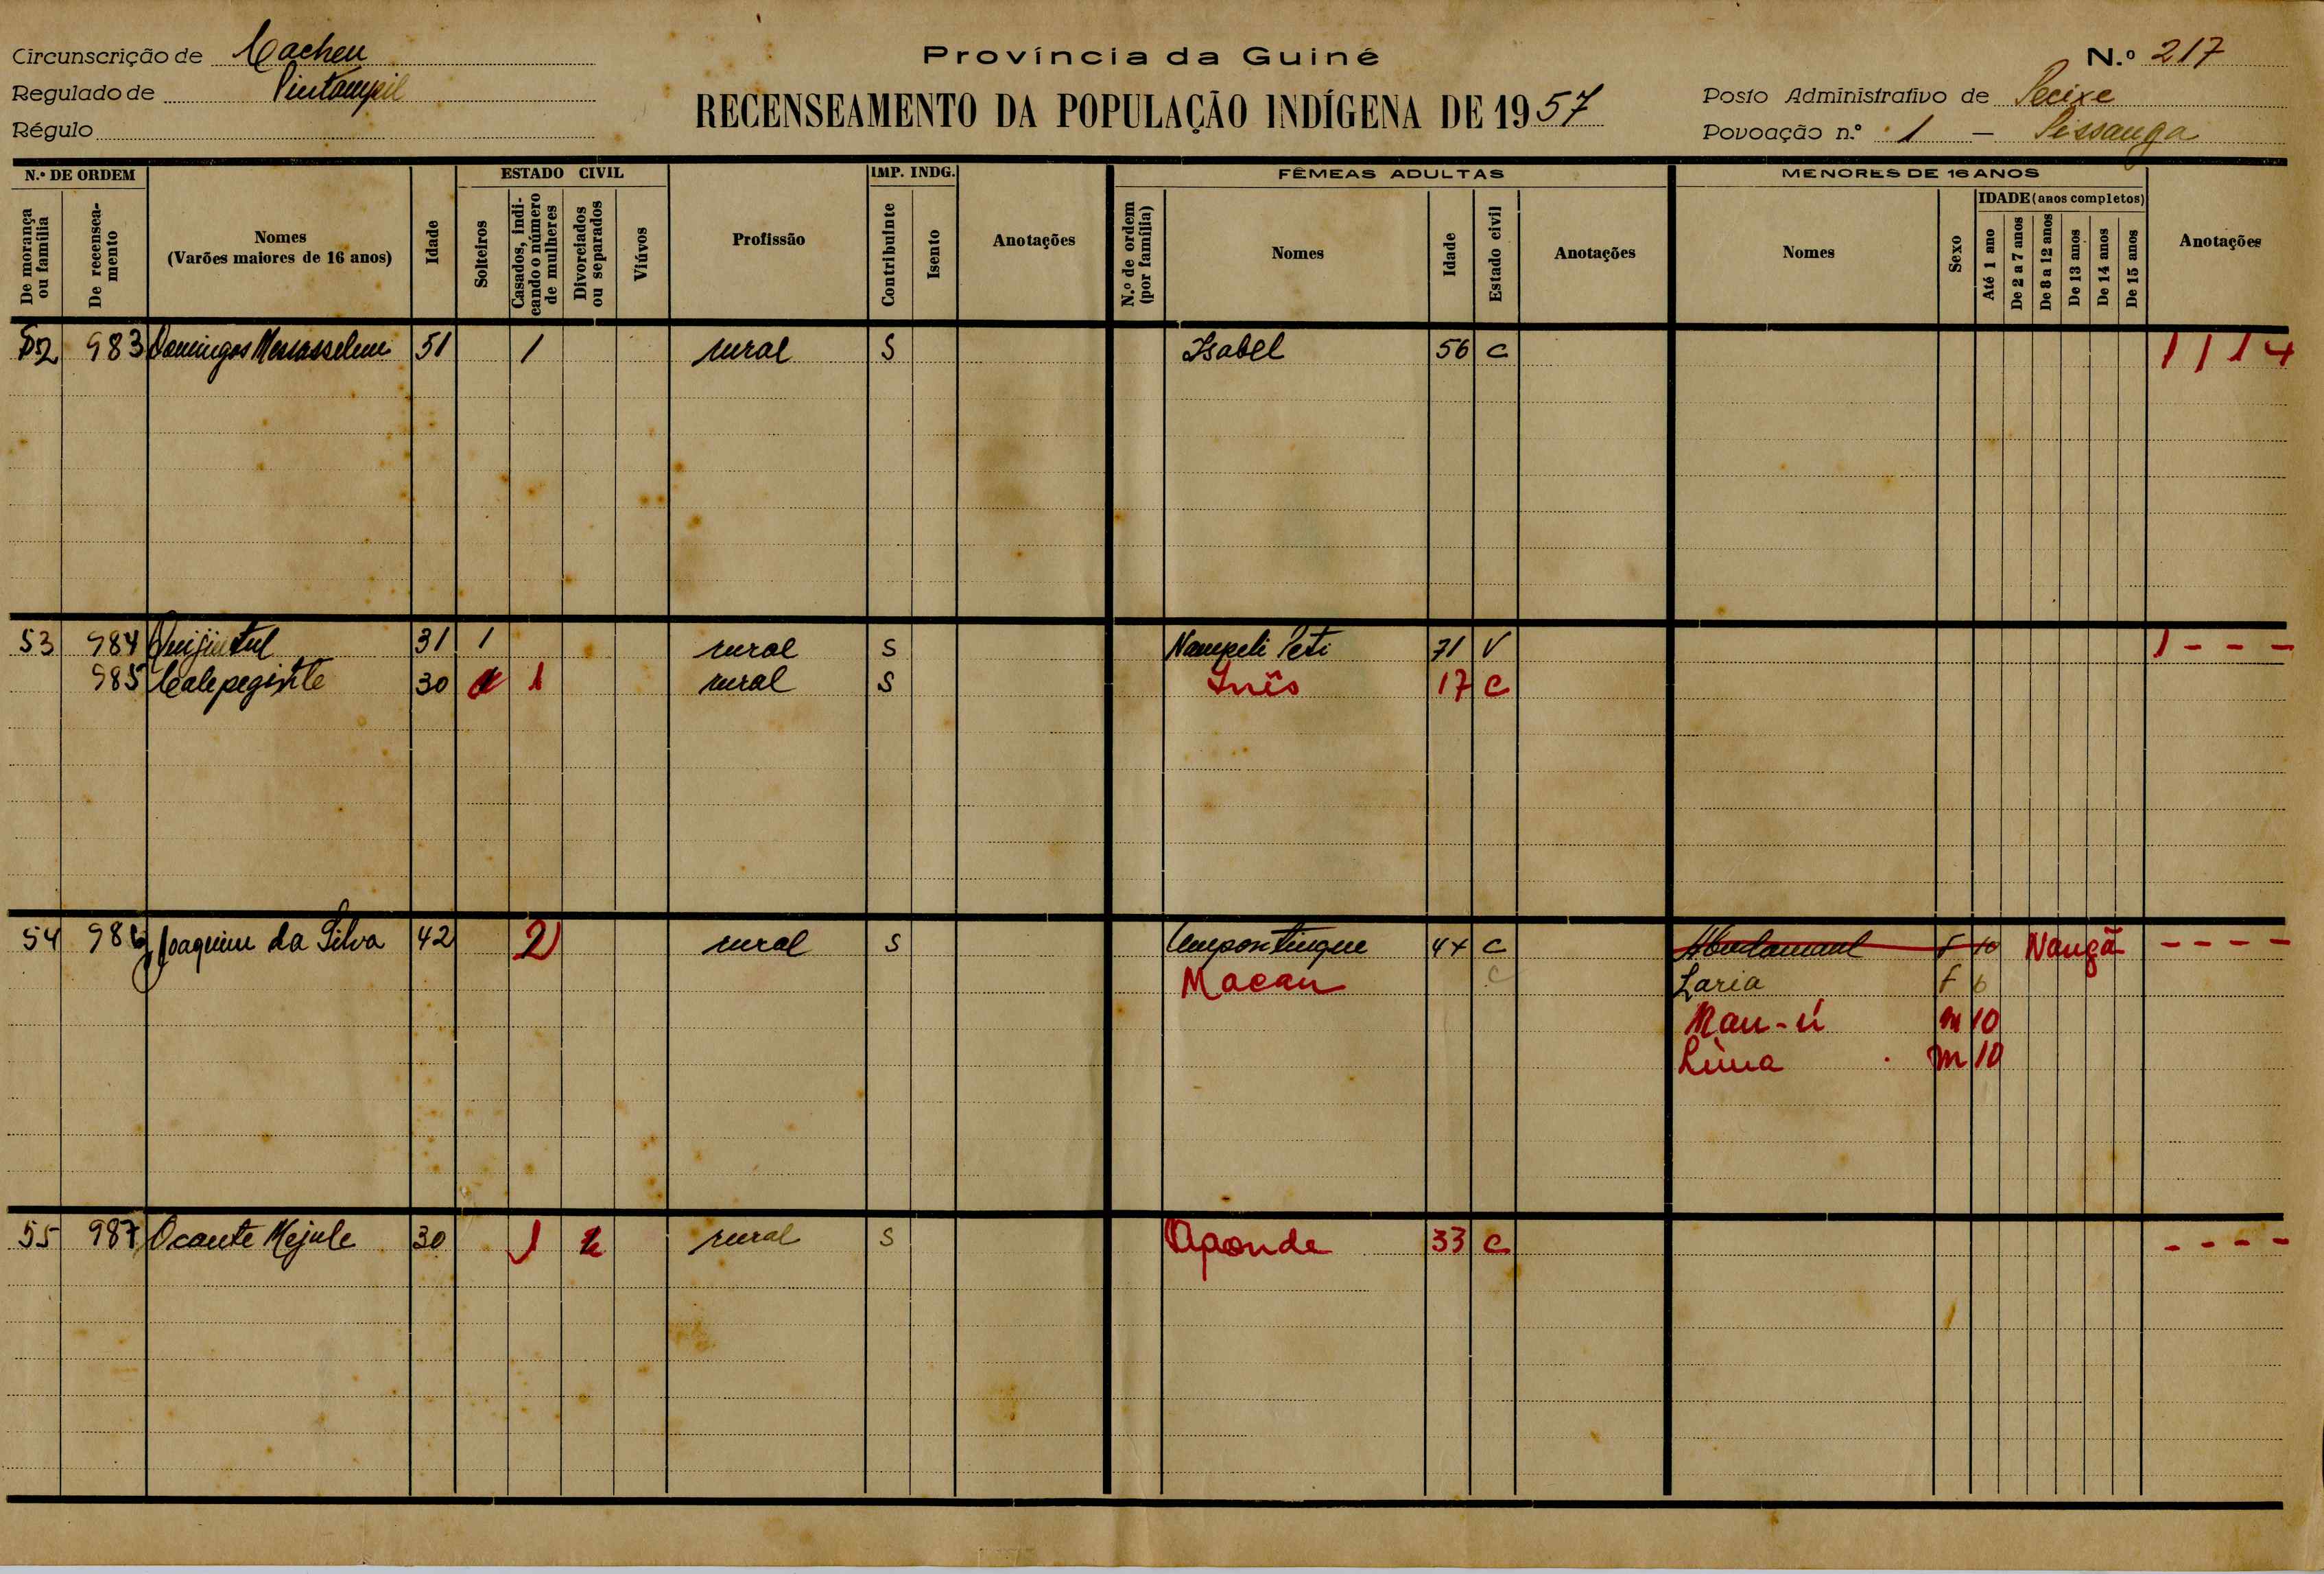 Circunscrição de Cacheu
Regulado de
Régulo
Província da Guiné
RECENSEAMENTO DA POPULAÇÃO INDÍGENA DE 1957
N.º 217
Posto Administrativo de Pecixe
Povoação n.º 1 — Pissanga
N.º DE ORDEM
De morança ou família
De recenseamento
Nomes
(Varões maiores de 16 anos)
Idade
ESTADO CIVIL
Solteiros
Casados, indicando o número de mulheres
Divorciados ou separados
Viúvos
Profissão
IMP. INDG.
Contribuinte
Isento
Anotações
FÊMEAS ADULTAS
N.º de ordem (por família)
Nomes
Idade
Estado civil
Anotações
MENORES DE 16 ANOS
Nomes
Sexo
IDADE (anos completos)
Até 1 ano
De 2 a 7 anos
De 8 a 12 anos
De 13 anos
De 14 anos
De 15 anos
Anotações
52 983 Domingos 51 1 rural S Isabel 56 C 1 1 1 4
53 984 31 1 rural S Nampeli Peti 71 V 1 - - -
985 30 1 rural S Inês 17 C
54 986 Joaquim da Silva 42 2 rural S C F 10 Nangã - - - -
Macau C Laria F 6
Mau-ú M 10
M 10
55 987 Ocante Mejule 30 1 rural S Aponde 33 C - - - -